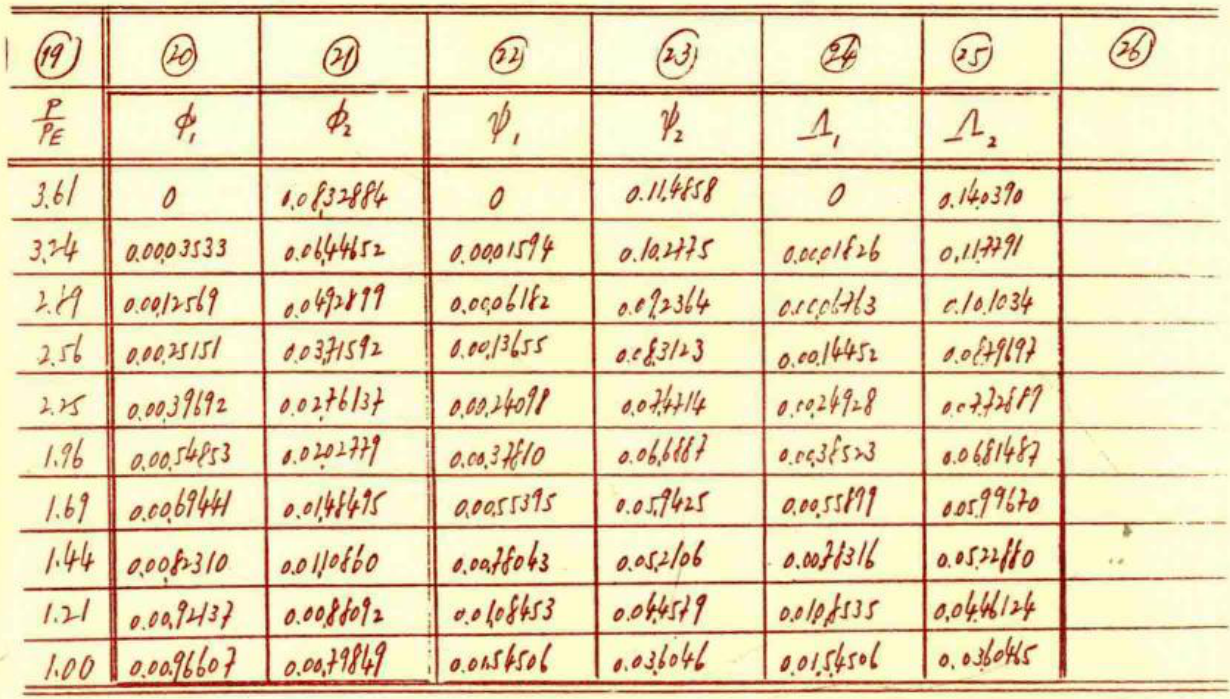 ⑲ ⑳ ㉑ ㉒ ㉓ ㉔ ㉕ ㉖
P/PE ϕ₁ ϕ₂ ψ₁ ψ₂ Λ₁ Λ₂
3.61 0 0.0832884 0 0.114858 0 0.140390
3.24 0.0003533 0.0644652 0.0001594 0.102775 0.0001826 0.117791
2.89 0.0012569 0.0492899 0.0006182 0.092364 0.0006763 0.101034
2.56 0.0025151 0.0371592 0.0013655 0.083123 0.0014452 0.0879697
2.25 0.0039692 0.0276137 0.0024098 0.074714 0.0024928 0.0772889
1.96 0.0054853 0.0202779 0.0037810 0.066887 0.0038523 0.0681487
1.69 0.0069441 0.0148495 0.0055395 0.059425 0.0055899 0.0599670
1.44 0.0082310 0.0110860 0.0078043 0.052106 0.0078316 0.0522880
1.21 0.0092137 0.0088092 0.0108453 0.044579 0.0108535 0.0446124
1.00 0.0096607 0.0079849 0.0154506 0.036046 0.0154506 0.0360465